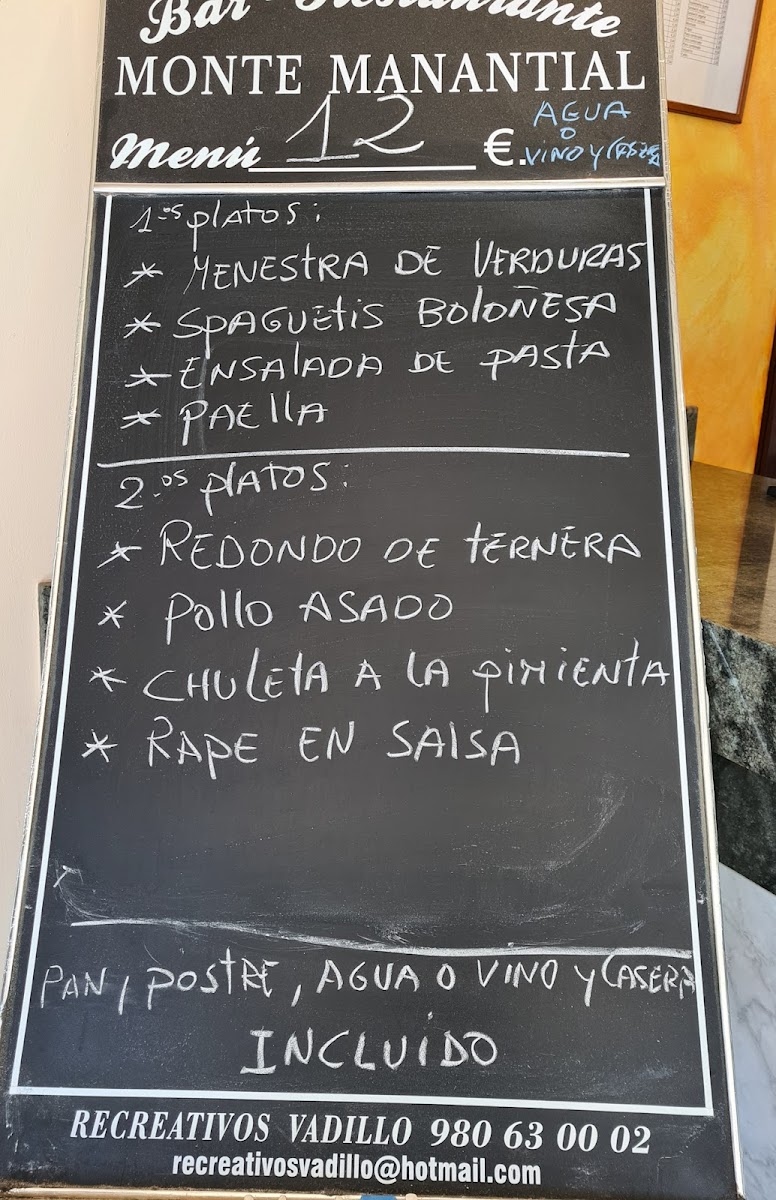 Bar - Restaurante
MONTE MANANTIAL
Menú 12 €.
AGUA
O
VINO Y CASERA
1.os platos:
* MENESTRA DE VERDURAS
* SPAGUETIS BOLOÑESA
* ENSALADA DE PASTA
* PAELLA
2.os platos:
* REDONDO DE TERNERA
* POLLO ASADO
* CHULETA A LA PIMIENTA
* RAPE EN SALSA
PAN, POSTRE, AGUA O VINO Y CASERA
INCLUÍDO
RECREATIVOS VADILLO 980 63 00 02
recreativosvadillo@hotmail.com